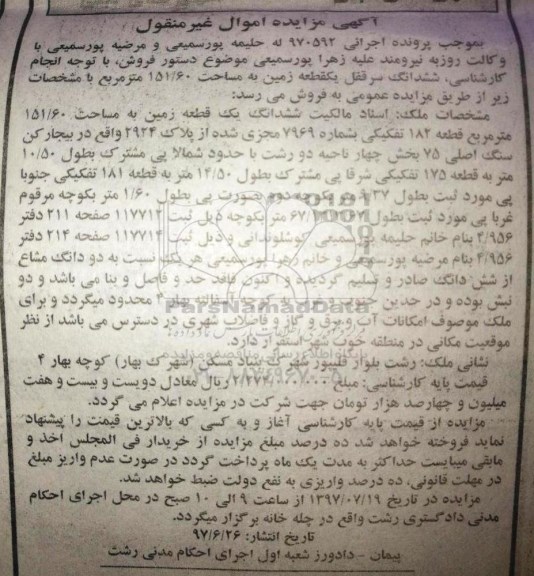 آگهی مزایده اموال غیرمنقول
بموجب پرونده اجرائی ۹۷۰۵۹۲ له حلیمه پورسمیعی و مرضیه پورسمیعی با
وکالت روزبه نیرومند علیه زهرا پورسمیعی موضوع دستور فروش، با توجه انجام
کارشناسی، ششدانگ سرقفل یکقطعه زمین به مساحت ۱۵۱/۶۰ مترمربع با مشخصات
زیر از طریق مزایده عمومی به فروش می رسد:
مشخصات ملک: اسناد مالکیت ششدانگ یک قطعه زمین به مساحت ۱۵۱/۶۰
مترمربع قطعه ۱۸۲ تفکیکی بشماره ۷۹۶۹ مجزی شده از پلاک ۲۹۲۴ واقع در بیجارکن
سنگ اصلی ۷۵ بخش چهار ناحیه دو رشت با حدود شمالا پی مشترک بطول ۱۰/۵۰
متر به قطعه ۱۷۵ تفکیکی شرقا پی مشترک بطول ۱۴/۵۰ متر به قطعه ۱۸۱ تفکیکی جنوبا
پی مورد ثبت بطول دوم بصورت پی بطول ۱/۶۰ متر بکوچه مرقوم
غربا پی مورد ثبت بطول متر بکوچه ذیل ثبت ۱۱۷۷۱۲ صفحه ۲۱۱ دفتر
۲/۹۵۶ بنام خانم حلیمه پورسمیعی گوشلوندانی و ذیل ثبت ۱۱۷۷۱۴ صفحه ۲۱۴ دفتر
۲/۹۵۶ بنام مرضیه پورسمیعی و خانم زهرا پورسمیعی هر یک نسبت به دو دانگ مشاع
از شش دانگ صادر و تسلیم گردیده و اکنون فاقد حد و فاصل و بنا می باشد و دو
نبش بوده و در حدین جنوب و غرب به کوچه آسفالته بهار ۴ محدود میگردد و برای
ملک موصوف امکانات آب و برق و گاز و فاضلاب شهری در دسترس می باشد از نظر
موقعیت مکانی در منطقه خوب شهر استقرار دارد.
نشانی ملک: رشت بلوار قلیپور شهرک بنیاد مسکن (شهرک بهار) کوچه بهار ۴
قیمت پایه کارشناسی: مبلغ ۲/۲۷۴/۰۰۰/۰۰۰ ریال معادل دویست و بیست و هفت
میلیون و چهارصد هزار تومان جهت شرکت در مزایده اعلام می گردد.
مزایده از قیمت پایه کارشناسی آغاز و به کسی که بالاترین قیمت را پیشنهاد
نماید فروخته خواهد شد ده درصد مبلغ مزایده از خریدار فی المجلس اخذ و
مابقی میبایست حداکثر به مدت یک ماه پرداخت گردد در صورت عدم واریز مبلغ
در مهلت قانونی، ده درصد واریزی به نفع دولت ضبط خواهد شد.
مزایده در تاریخ ۱۳۹۷/۰۷/۱۹ از ساعت ۹ الی ۱۰ صبح در محل اجرای احکام
مدنی دادگستری رشت واقع در چله خانه برگزار میگردد.
تاریخ انتشار: ۹۷/۶/۲۶
پیمان - دادورز شعبه اول اجرای احکام مدنی رشت
ParsNamadData